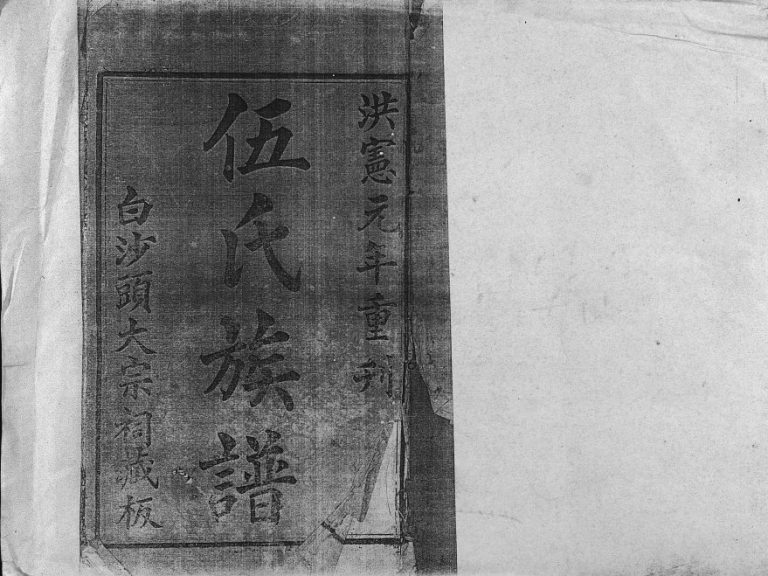 洪憲元年重刋
伍氏族譜
白沙頭大宗祠藏板